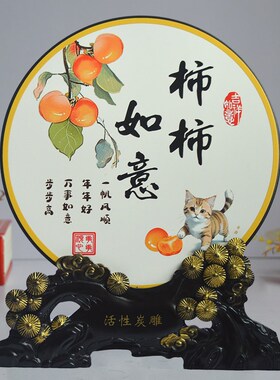 柿柿
如意
一帆风顺
年年好
万事如意
步步高
活性炭雕